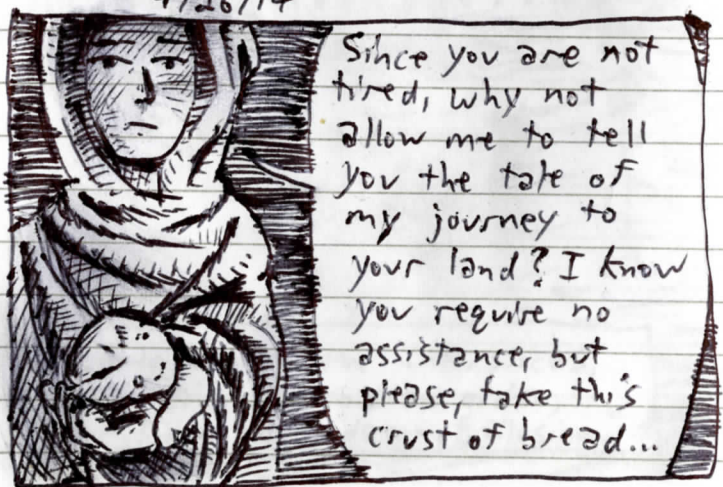 Since you are not
tired, why not
allow me to tell
you the tale of
my journey to
your land? I know
you require no
assistance, but
please, take this
crust of bread...